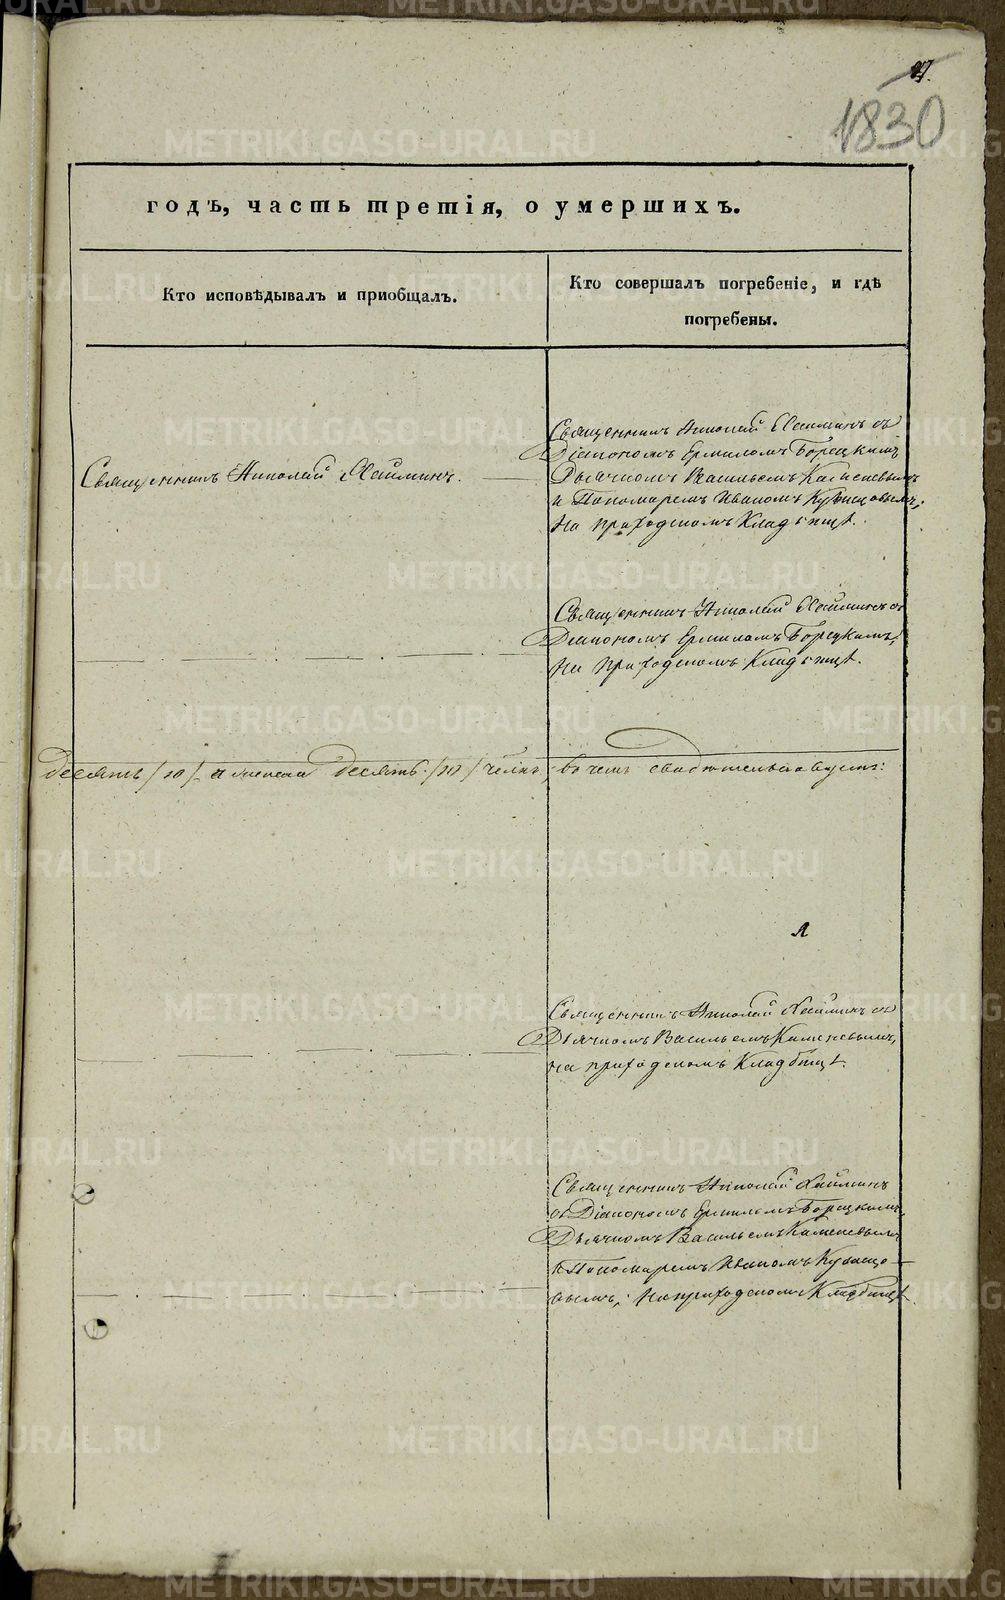 27.
1830
годъ, часть третія, о умершихъ.
Кто исповѣдывалъ и пріобщалъ.
Кто совершалъ погребеніе, и гдѣ
погребены.
Священникъ Николай Хаймин съ
Діакономъ Ермиломъ Борецкимъ,
Дьячкомъ Васильемъ Каменевымъ
и Пономаремъ Иваномъ Кузнецовымъ;
на приходскомъ Кладбищѣ.
Священникъ Николай Хайминъ.
Священникъ Николай Хайминъ съ
Діакономъ Ермиломъ Борецкимъ,
на приходскомъ Кладбищѣ.
десять /10/ а женска десять /10/ челов. въ чемъ свидѣтельствуемъ:
Священникъ Николай Хайминъ съ
Дьячкомъ Васильемъ Каменевымъ,
на приходскомъ Кладбищѣ.
Священникъ Николай Хайминъ
съ Діакономъ Ермиломъ Борецкимъ,
Дьячкомъ Васильемъ Каменевымъ
и Пономаремъ Иваномъ Кузнецо-
вымъ; на приходскомъ Кладбищѣ
METRIKI.GASO-URAL.RU